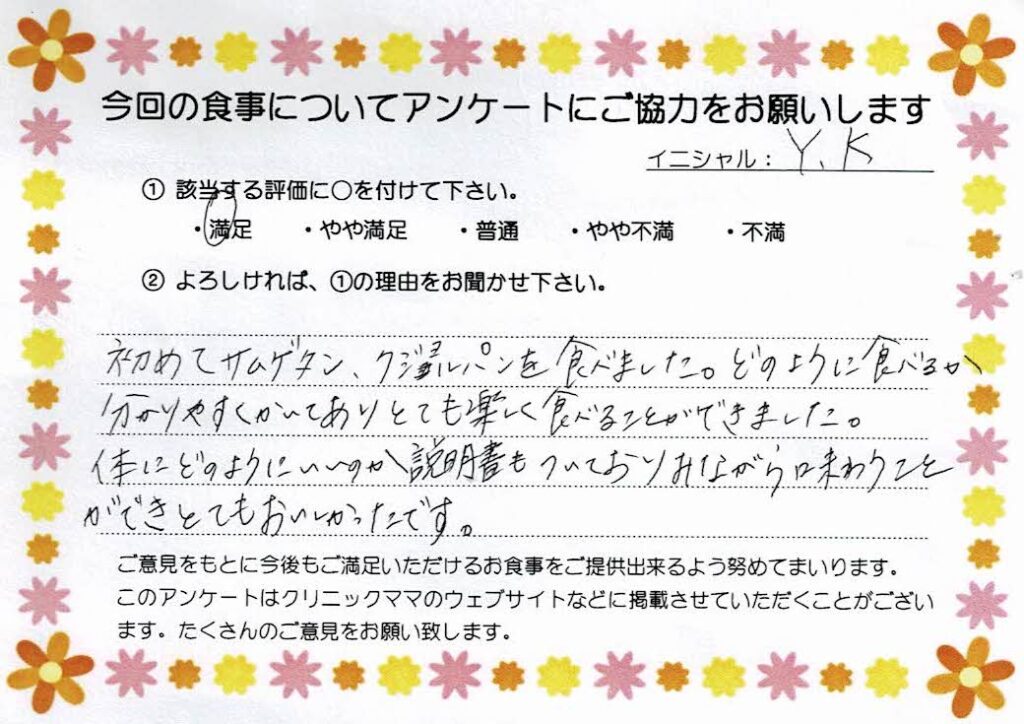 今回の食事についてアンケートにご協力をお願いします
イニシャル： Y.K
① 該当する評価に〇を付けて下さい。
・満足 ・やや満足 ・普通 ・やや不満 ・不満
② よろしければ、①の理由をお聞かせ下さい。
初めてサムゲタン、クジョルパンを食べました。どのように食べるか
分かりやすくかいてありとても楽しく食べることができました。
体にどのようにいいのか説明書もついておりみながら味わうこと
ができとてもおいしかったです。
ご意見をもとに今後もご満足いただけるお食事をご提供出来るよう努めてまいります。
このアンケートはクリニックママのウェブサイトなどに掲載させていただくことがござい
ます。たくさんのご意見をお願い致します。